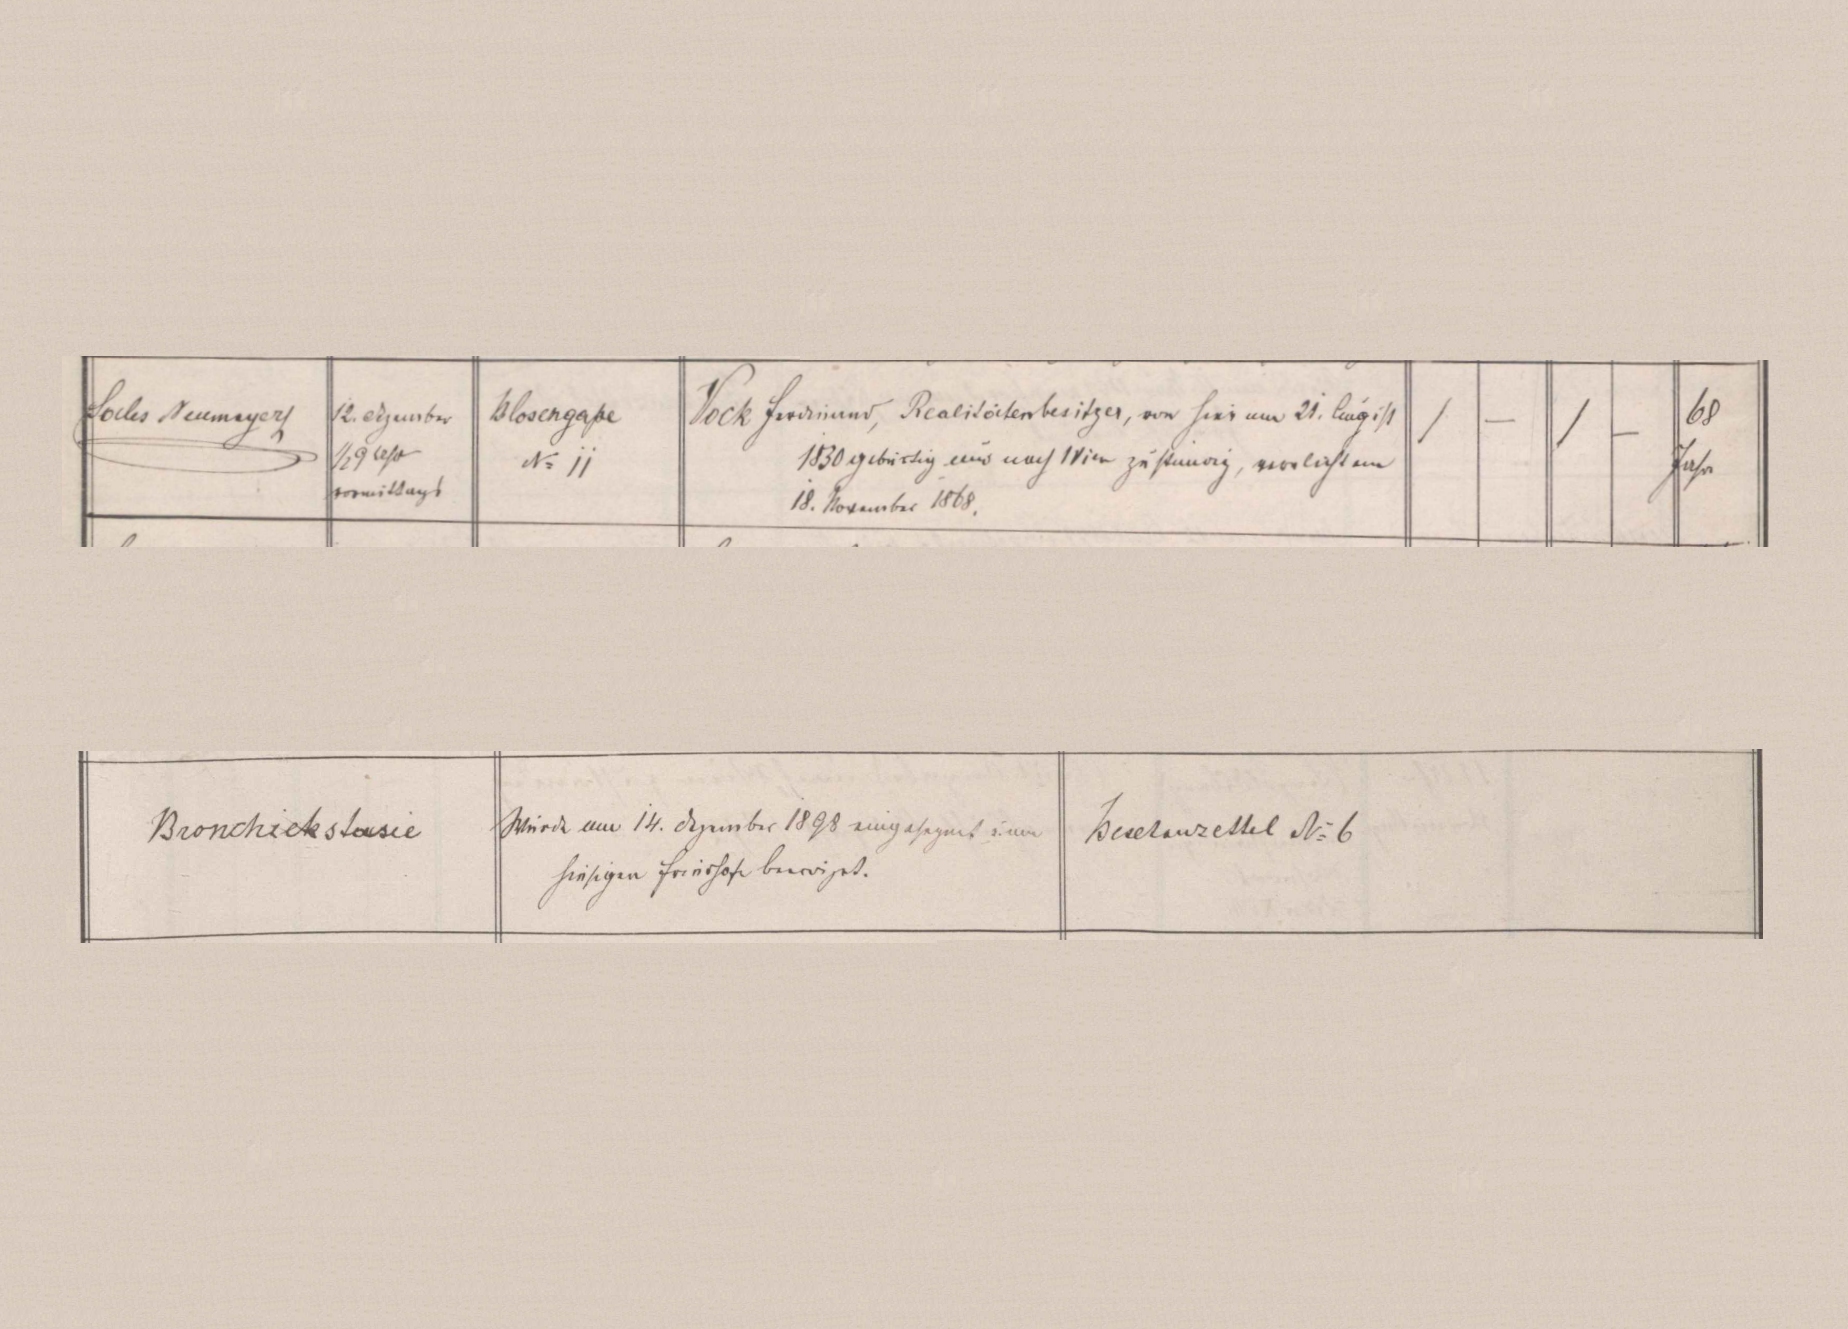 Neumayer
12. Dezember
½9 Uhr
vormittags
Blosengaße
No 11
Vock Ferdinand, Realitätenbesitzer, von hier am 21. August
1830 gebürtig und nach Wien zuständig, verelicht am
18. November 1868.
68
Jahr
Bronchiektasie
Wurde am 14. Dezember 1898 eingesegnet u. am
hiesigen Friedhofe beerdiget.
Beschauzettel No 6